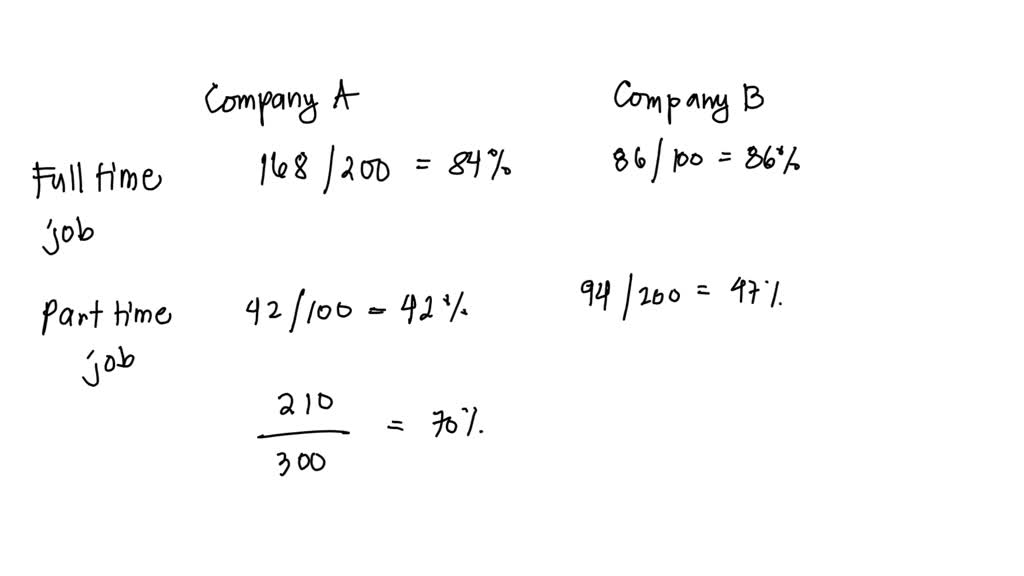 Company A Company B
Full time 168/200 = 84% 86/100 = 86%
job
Part time 42/100 = 42% 94/200 = 47%
job
210
300 = 70%